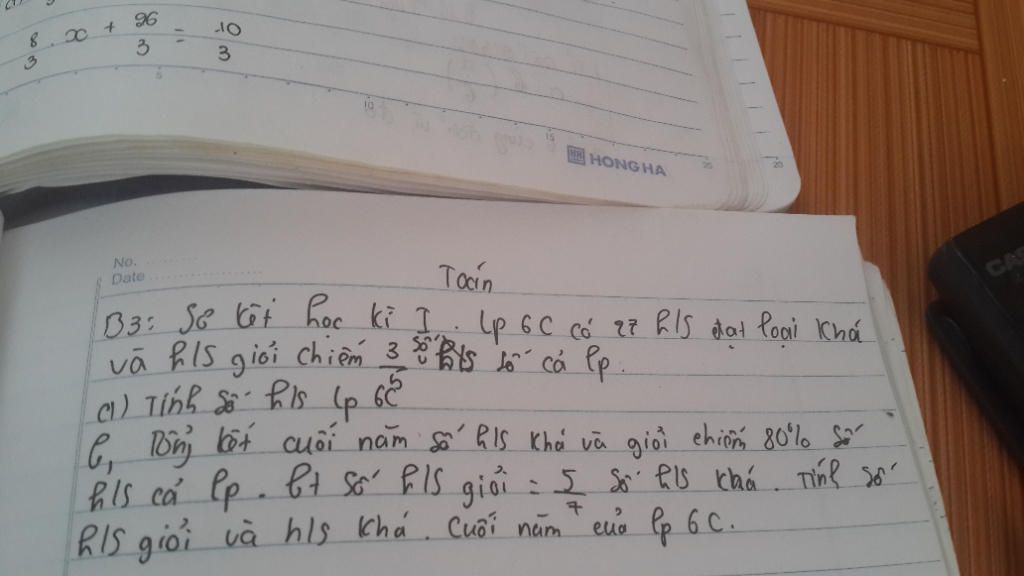 8/3 . x + 96/3 = 10/3
5
10
15
20
20
HONG HA
No.
Date
Toán
B3: Sơ kết học kì I. lp 6C có 27 h/s đạt loại Khá
và h/s giỏi chiếm 3/5 số h/s cả lp.
a) Tính số h/s lp 6C
b, Tổng kết cuối năm số h/s khá và giỏi chiếm 80% số
h/s cả lp. bt số h/s giỏi = 5/7 số h/s khá. Tính số
h/s giỏi và h/s khá. Cuối năm của lp 6C.
CAS